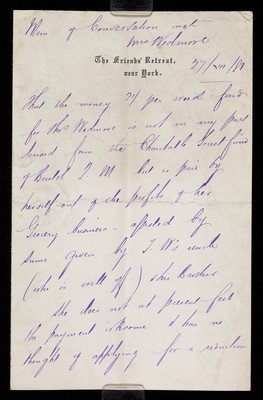 Mem of Conversation with
Mrs Wedmore
The Friends' Retreat,
near York.
27/XII/19
That the money 7/ per week paid
for Thos Wedmore is not in any part
derived from the Charitable Trust funds
of Bristol 2 M but is paid by
herself out of the profits of her
Grocery business - assisted by
sums given by T. W's uncle
(who is well off) & his Brother
She does not at present feel
the payment irksome & has no
thought of applying for a reduction